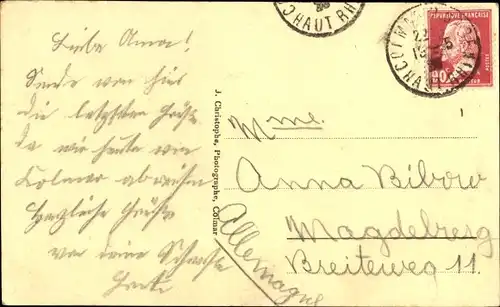 Liebe Anna!
Sende von hier
die letzten Grüße
da wir heute von
Colmar abreisen
Herzliche Grüße
von deine Schwester
J. Christophe, Photographe, Colmar
HAUT RHIN
REPUBLIQUE FRANÇAISE
POSTES
90
Mme.
Anna Bibow
Magdeburg
Breiteweg 11.
Allemagne